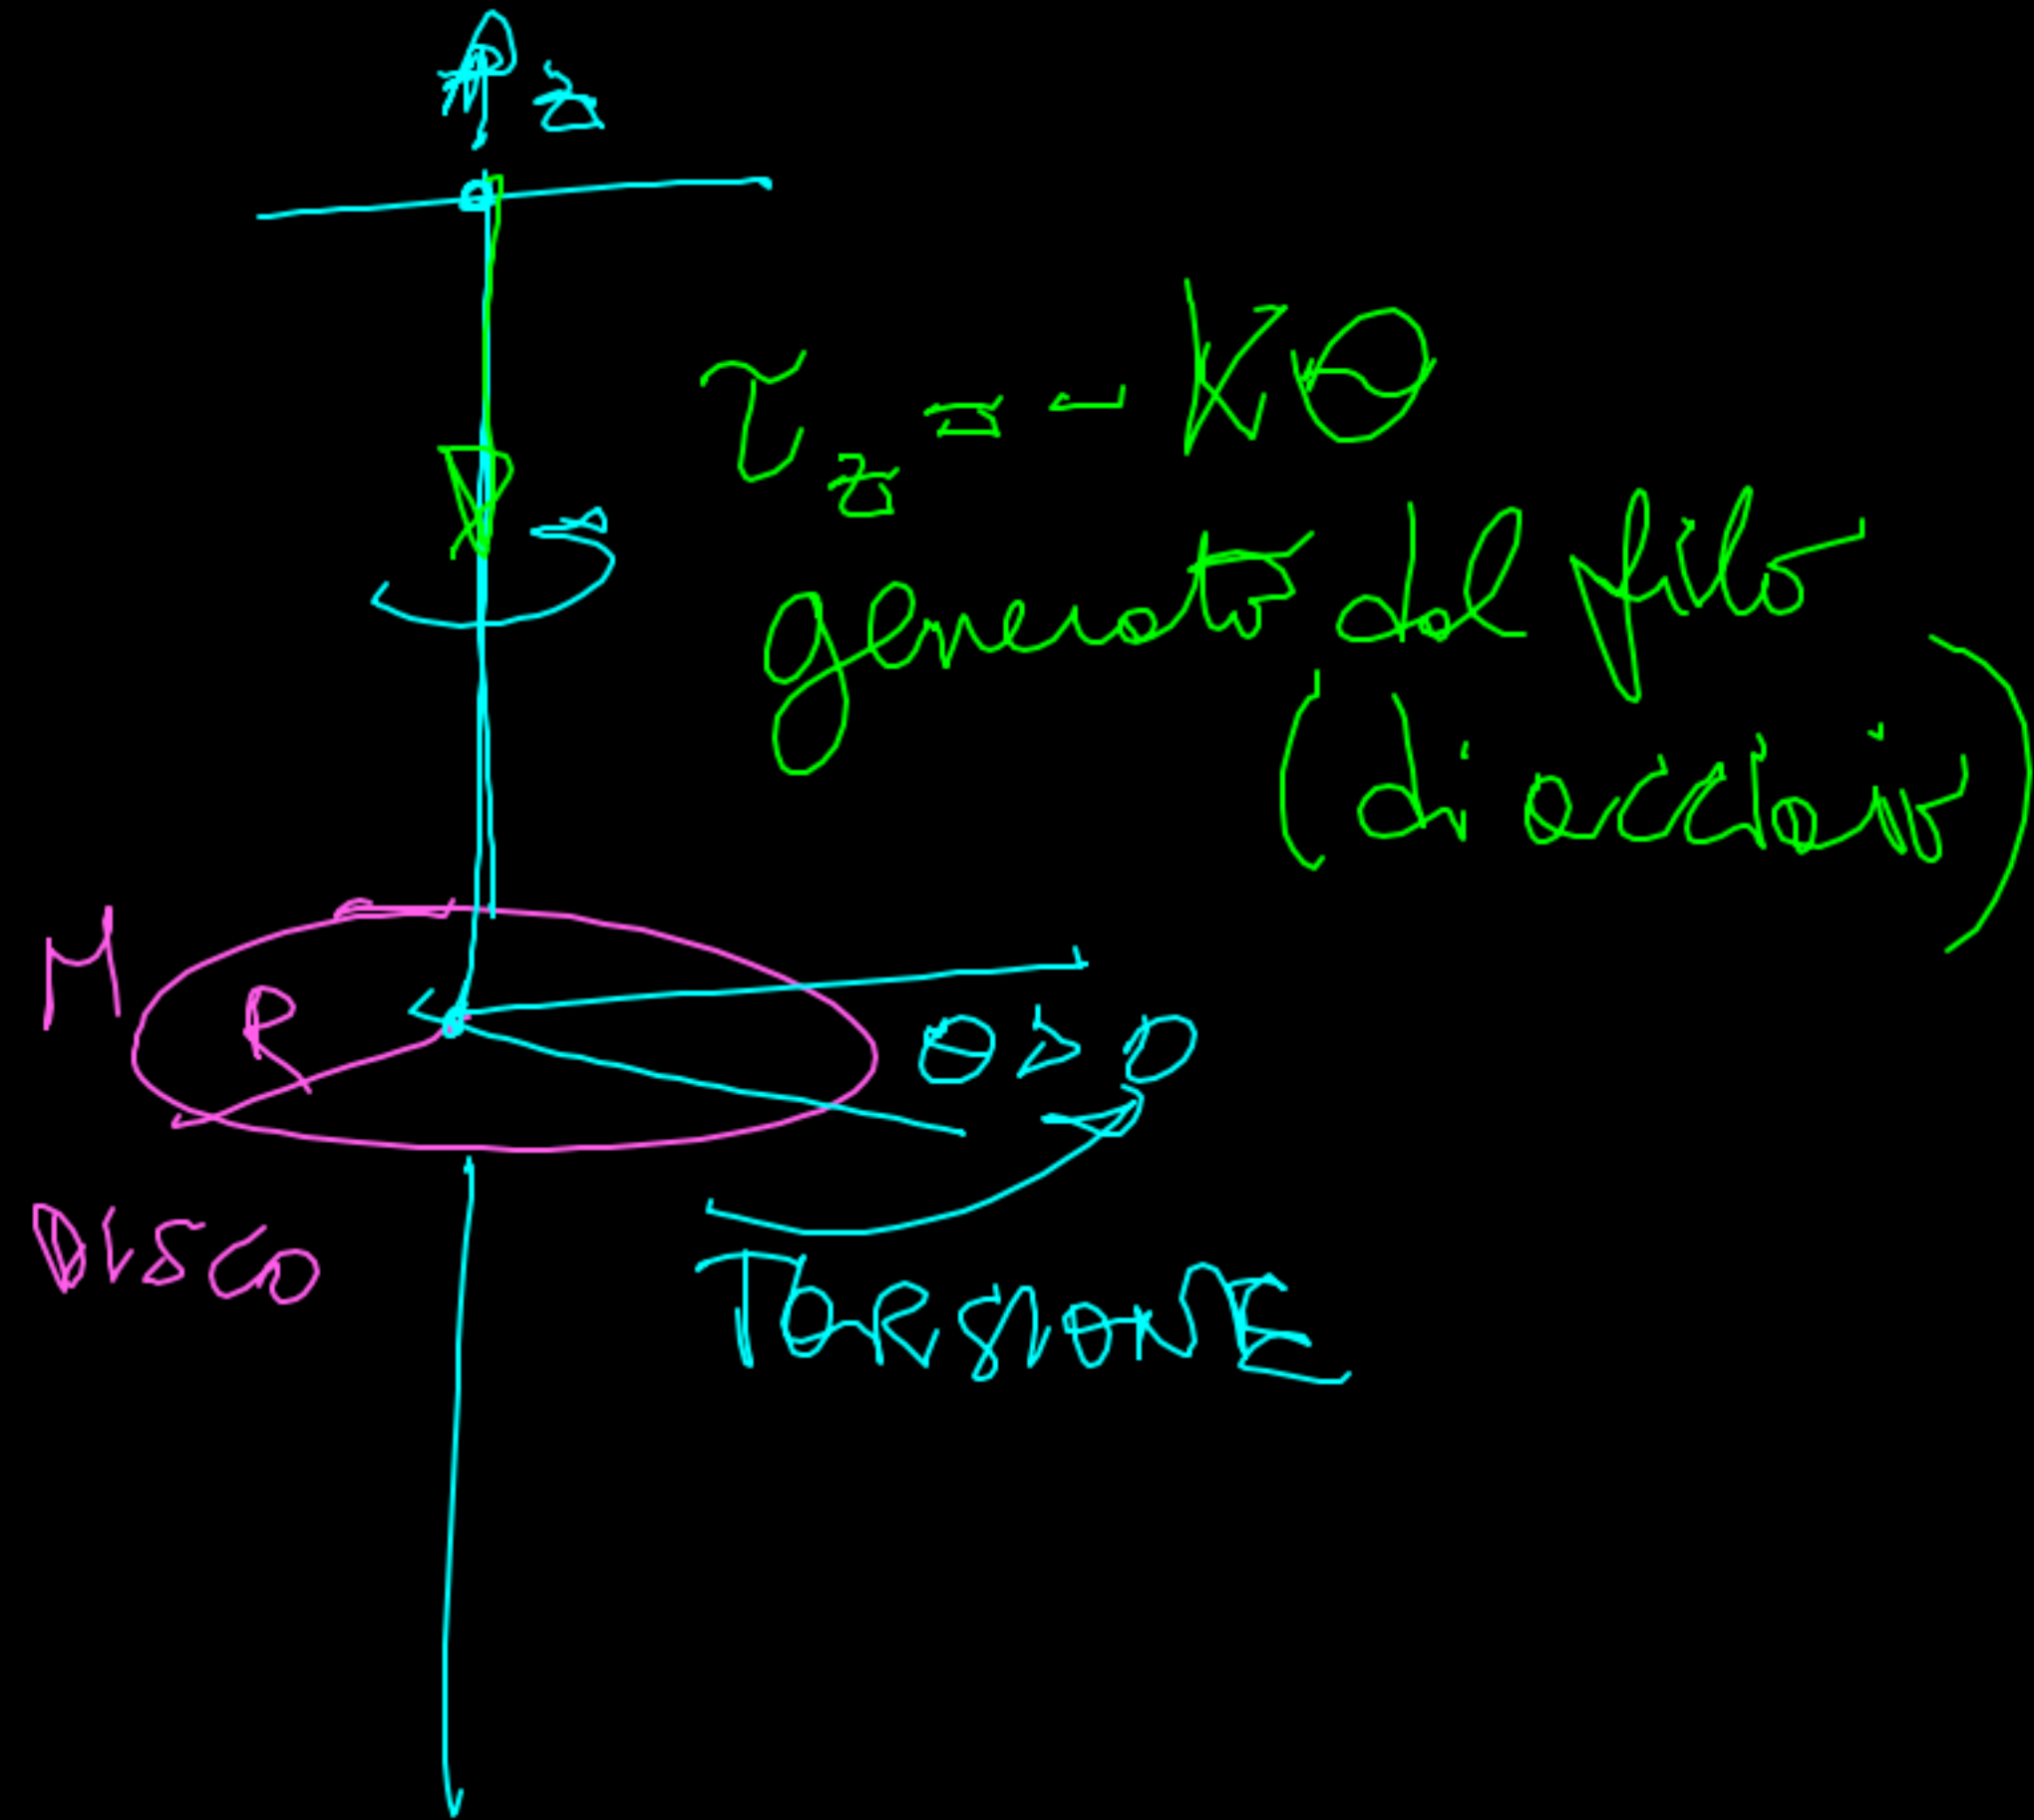 z
τ_z = -Kθ
generato dal filo
(di acciaio)
M
R
θ>0
DISCO
TORSIONE